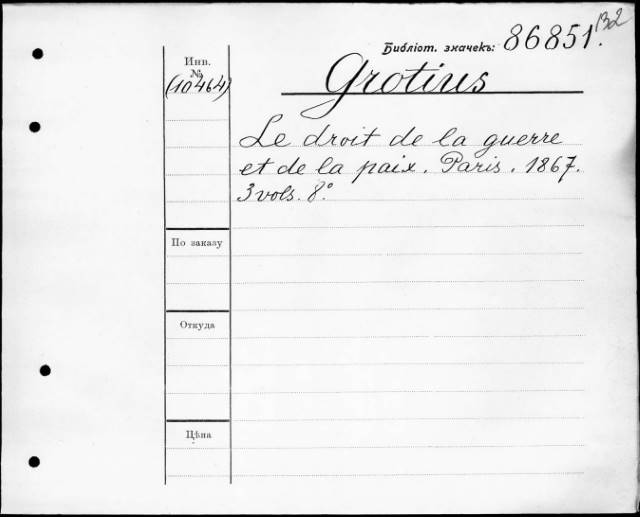 Библіот. значекъ: 86851. 132
Инв.
№
(10464)
Grotius
Le droit de la guerre
et de la paix. Paris. 1867.
3 vols. 8º
По заказу
Откуда
Цѣна